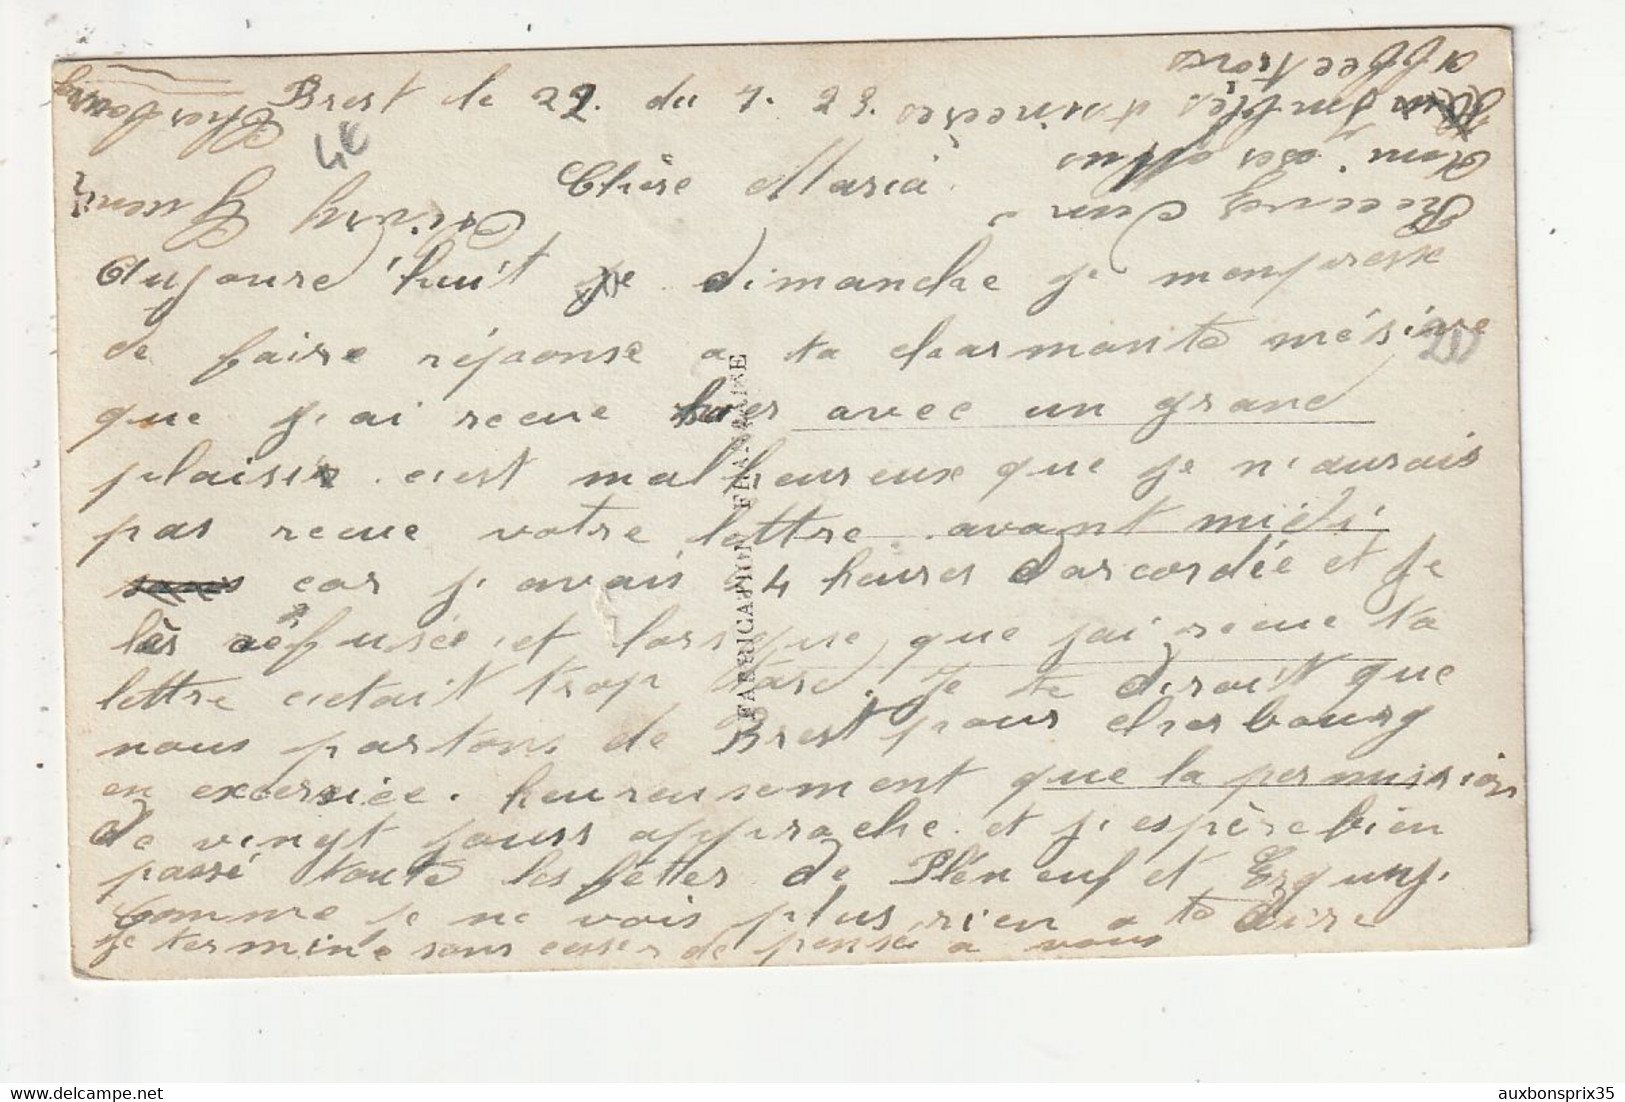 Brest le 22. du 7. 23.
Chère Maria
Aujoure'hui't je dimanche je m'enpresse
de faire réponse a ta charmante mésive
que j.ai recue hier avec un grand
plaisir. c'est malheureux que je n'aurais
pas recue votre lettre avant midi
car j.avais 4 heures d'arcordée et je
lès réfusée, et lorsque, que j'ai recue ta
lettre c'etait trop tard. je te diroit que
nous partons de Brest pour cherbourg
en excersiée. heureusement que la permission
de vingt jours approche. et j.espère bien
passé toute les fêtes de Plèneuf et Erquy.
Comme je ne vois plus rien a te dire
je termine sans cesser de pensé a vous
Reçoy d'un
Ami ses plus
humbles et sincères
affections
Cherbourg
FABRICATION FRANÇAISE
4€
20
auxbonsprix35